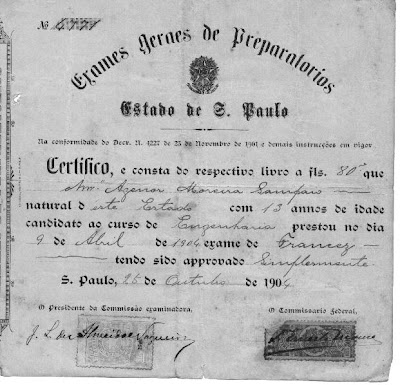 № 4771
Exames Geraes de Preparatorios
Estado de S. Paulo
Na conformidade do Decr. N. 4227 de 23 de Novembro de 1901 e demais instrucções em vigor
Certifico, e consta do respectivo livro a fls. 80 que
Agenor Moreira Sampaio
natural deste Estado com 13 annos de idade
candidato ao curso de Engenharia prestou no dia
9 de Abril de 1904 exame de Francez
tendo sido approvado Simplesmente
S. Paulo, 25 de Outubro de 1904
O Presidente da Commissão examinadora.
O Commissario Federal.
J. L. de Almeida Nogueira